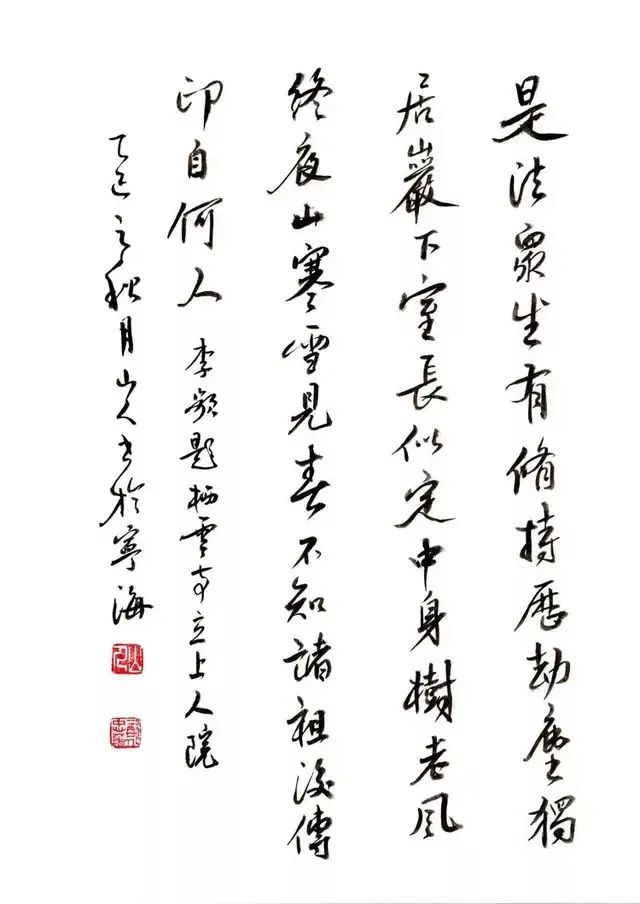 是法眾生有脩持歷劫塵獨
居巖下室長似定中身樹老風
終夜山寒雪見春不知諸祖後傳
印自何人 李頻題栖雲寺立上人院
乙巳之秋月山人書於寧海